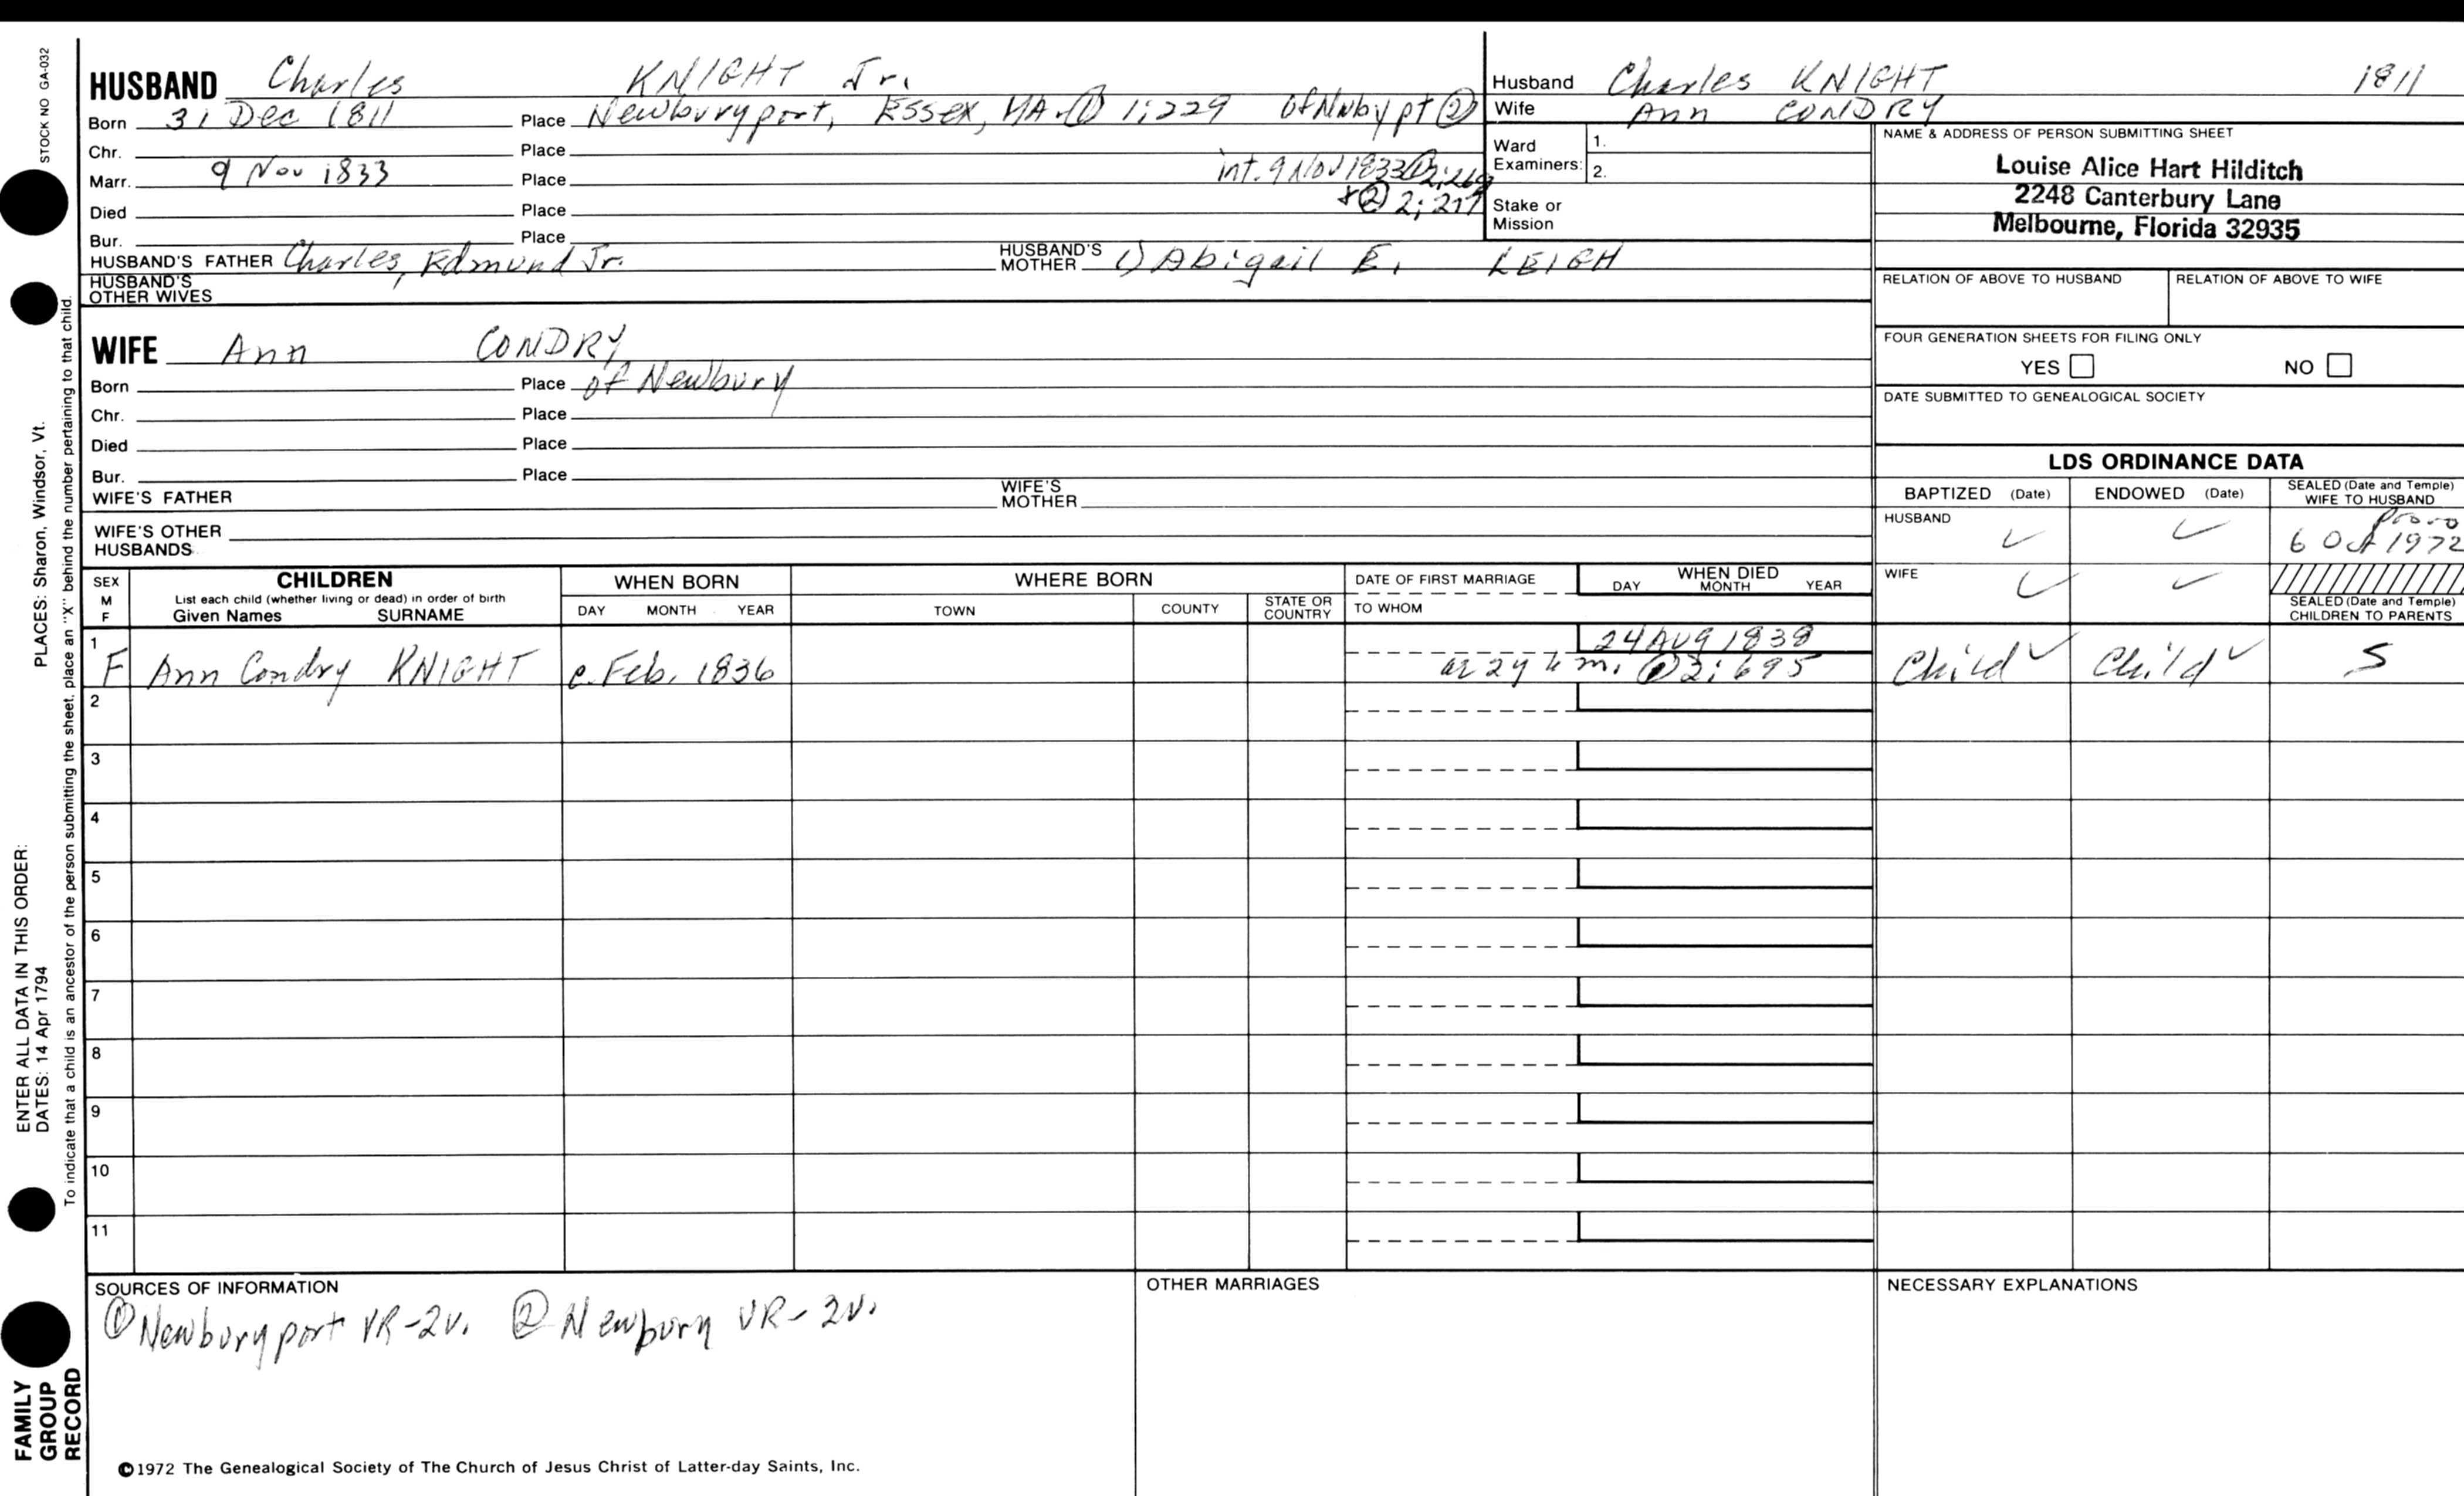 STOCK NO GA-032
PLACES: Sharon, Windsor, Vt.
ENTER ALL DATA IN THIS ORDER:
DATES: 14 Apr 1794
To indicate that a child is an ancestor of the person submitting the sheet, place an "X" behind the number pertaining to that child.
FAMILY
GROUP
RECORD
HUSBAND Charles KNIGHT Jr.
Born 31 Dec 1811 Place Newburyport, Essex, MA. ① 1:229 of Nwbypt ②
Chr. Place
Marr. 9 Nov 1833 Place int. 9 Nov 1833 ① 2:269
+ ② 2:277
Died Place
Bur. Place
HUSBAND'S FATHER Charles, Edmund Jr. HUSBAND'S MOTHER 1) Abigail E. LEIGH
HUSBAND'S
OTHER WIVES
WIFE Ann CONDRY
Born Place of Newbury
Chr. Place
Died Place
Bur. Place
WIFE'S FATHER WIFE'S MOTHER
WIFE'S OTHER
HUSBANDS
Husband Charles KNIGHT 1811
Wife Ann CONDRY
Ward
Examiners: 1.
2.
Stake or
Mission
NAME & ADDRESS OF PERSON SUBMITTING SHEET
Louise Alice Hart Hilditch
2248 Canterbury Lane
Melbourne, Florida 32935
RELATION OF ABOVE TO HUSBAND RELATION OF ABOVE TO WIFE
FOUR GENERATION SHEETS FOR FILING ONLY
YES NO
DATE SUBMITTED TO GENEALOGICAL SOCIETY
LDS ORDINANCE DATA
BAPTIZED (Date) ENDOWED (Date) SEALED (Date and Temple)
WIFE TO HUSBAND
HUSBAND ✓ ✓ Provo
6 Oct 1972
WIFE ✓ ✓
SEALED (Date and Temple)
CHILDREN TO PARENTS
SEX
M
F
CHILDREN
List each child (whether living or dead) in order of birth
Given Names SURNAME
WHEN BORN
DAY MONTH YEAR
WHERE BORN
TOWN COUNTY STATE OR COUNTRY
DATE OF FIRST MARRIAGE
TO WHOM
WHEN DIED
DAY MONTH YEAR
1 24 Aug 1838
F Ann Condry KNIGHT c. Feb. 1836 ae 2y 6m. ② 2:695 Child ✓ Child ✓ S
2
3
4
5
6
7
8
9
10
11
SOURCES OF INFORMATION
① Newburyport VR-2v. ② Newbury VR-2v.
OTHER MARRIAGES
NECESSARY EXPLANATIONS
©1972 The Genealogical Society of The Church of Jesus Christ of Latter-day Saints, Inc.